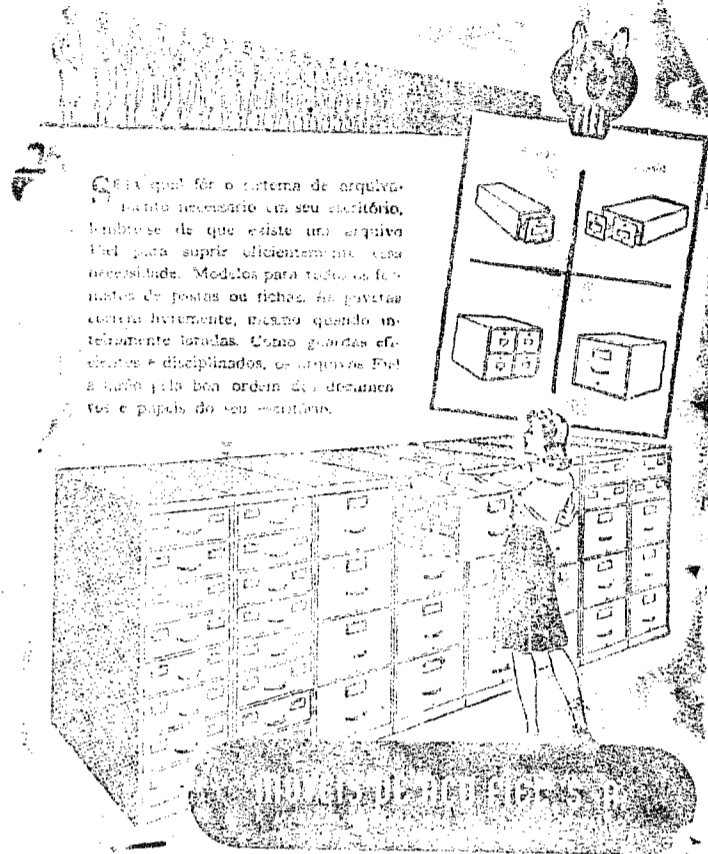 Seja qual fôr o sistema de arquiva-
mento necessário em seu escritório,
lembre-se de que existe um arquivo
Fiel para suprir eficientemente essa
necessidade. Modelos para todos os for-
matos de pastas ou fichas. As gavetas
correm livremente, mesmo quando in-
teiramente lotadas. Como guardas efi-
cientes e disciplinados, os arquivos Fiel
pela boa ordem dos documen-
tos e papéis do seu escritório.
MOVEIS DE AÇO FIEL S. A.